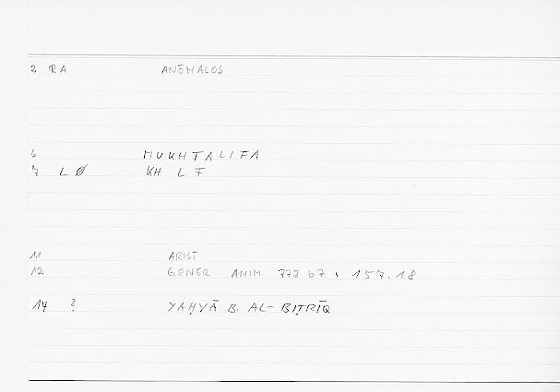 2 RA ANŌMALOS
6 MUKHTALIFA
7 LØ KH L F
11 ARIST
12 GENER ANIM 772 b7, 157.18
14 ? YAḤYĀ B. AL-BIṬRĪQ